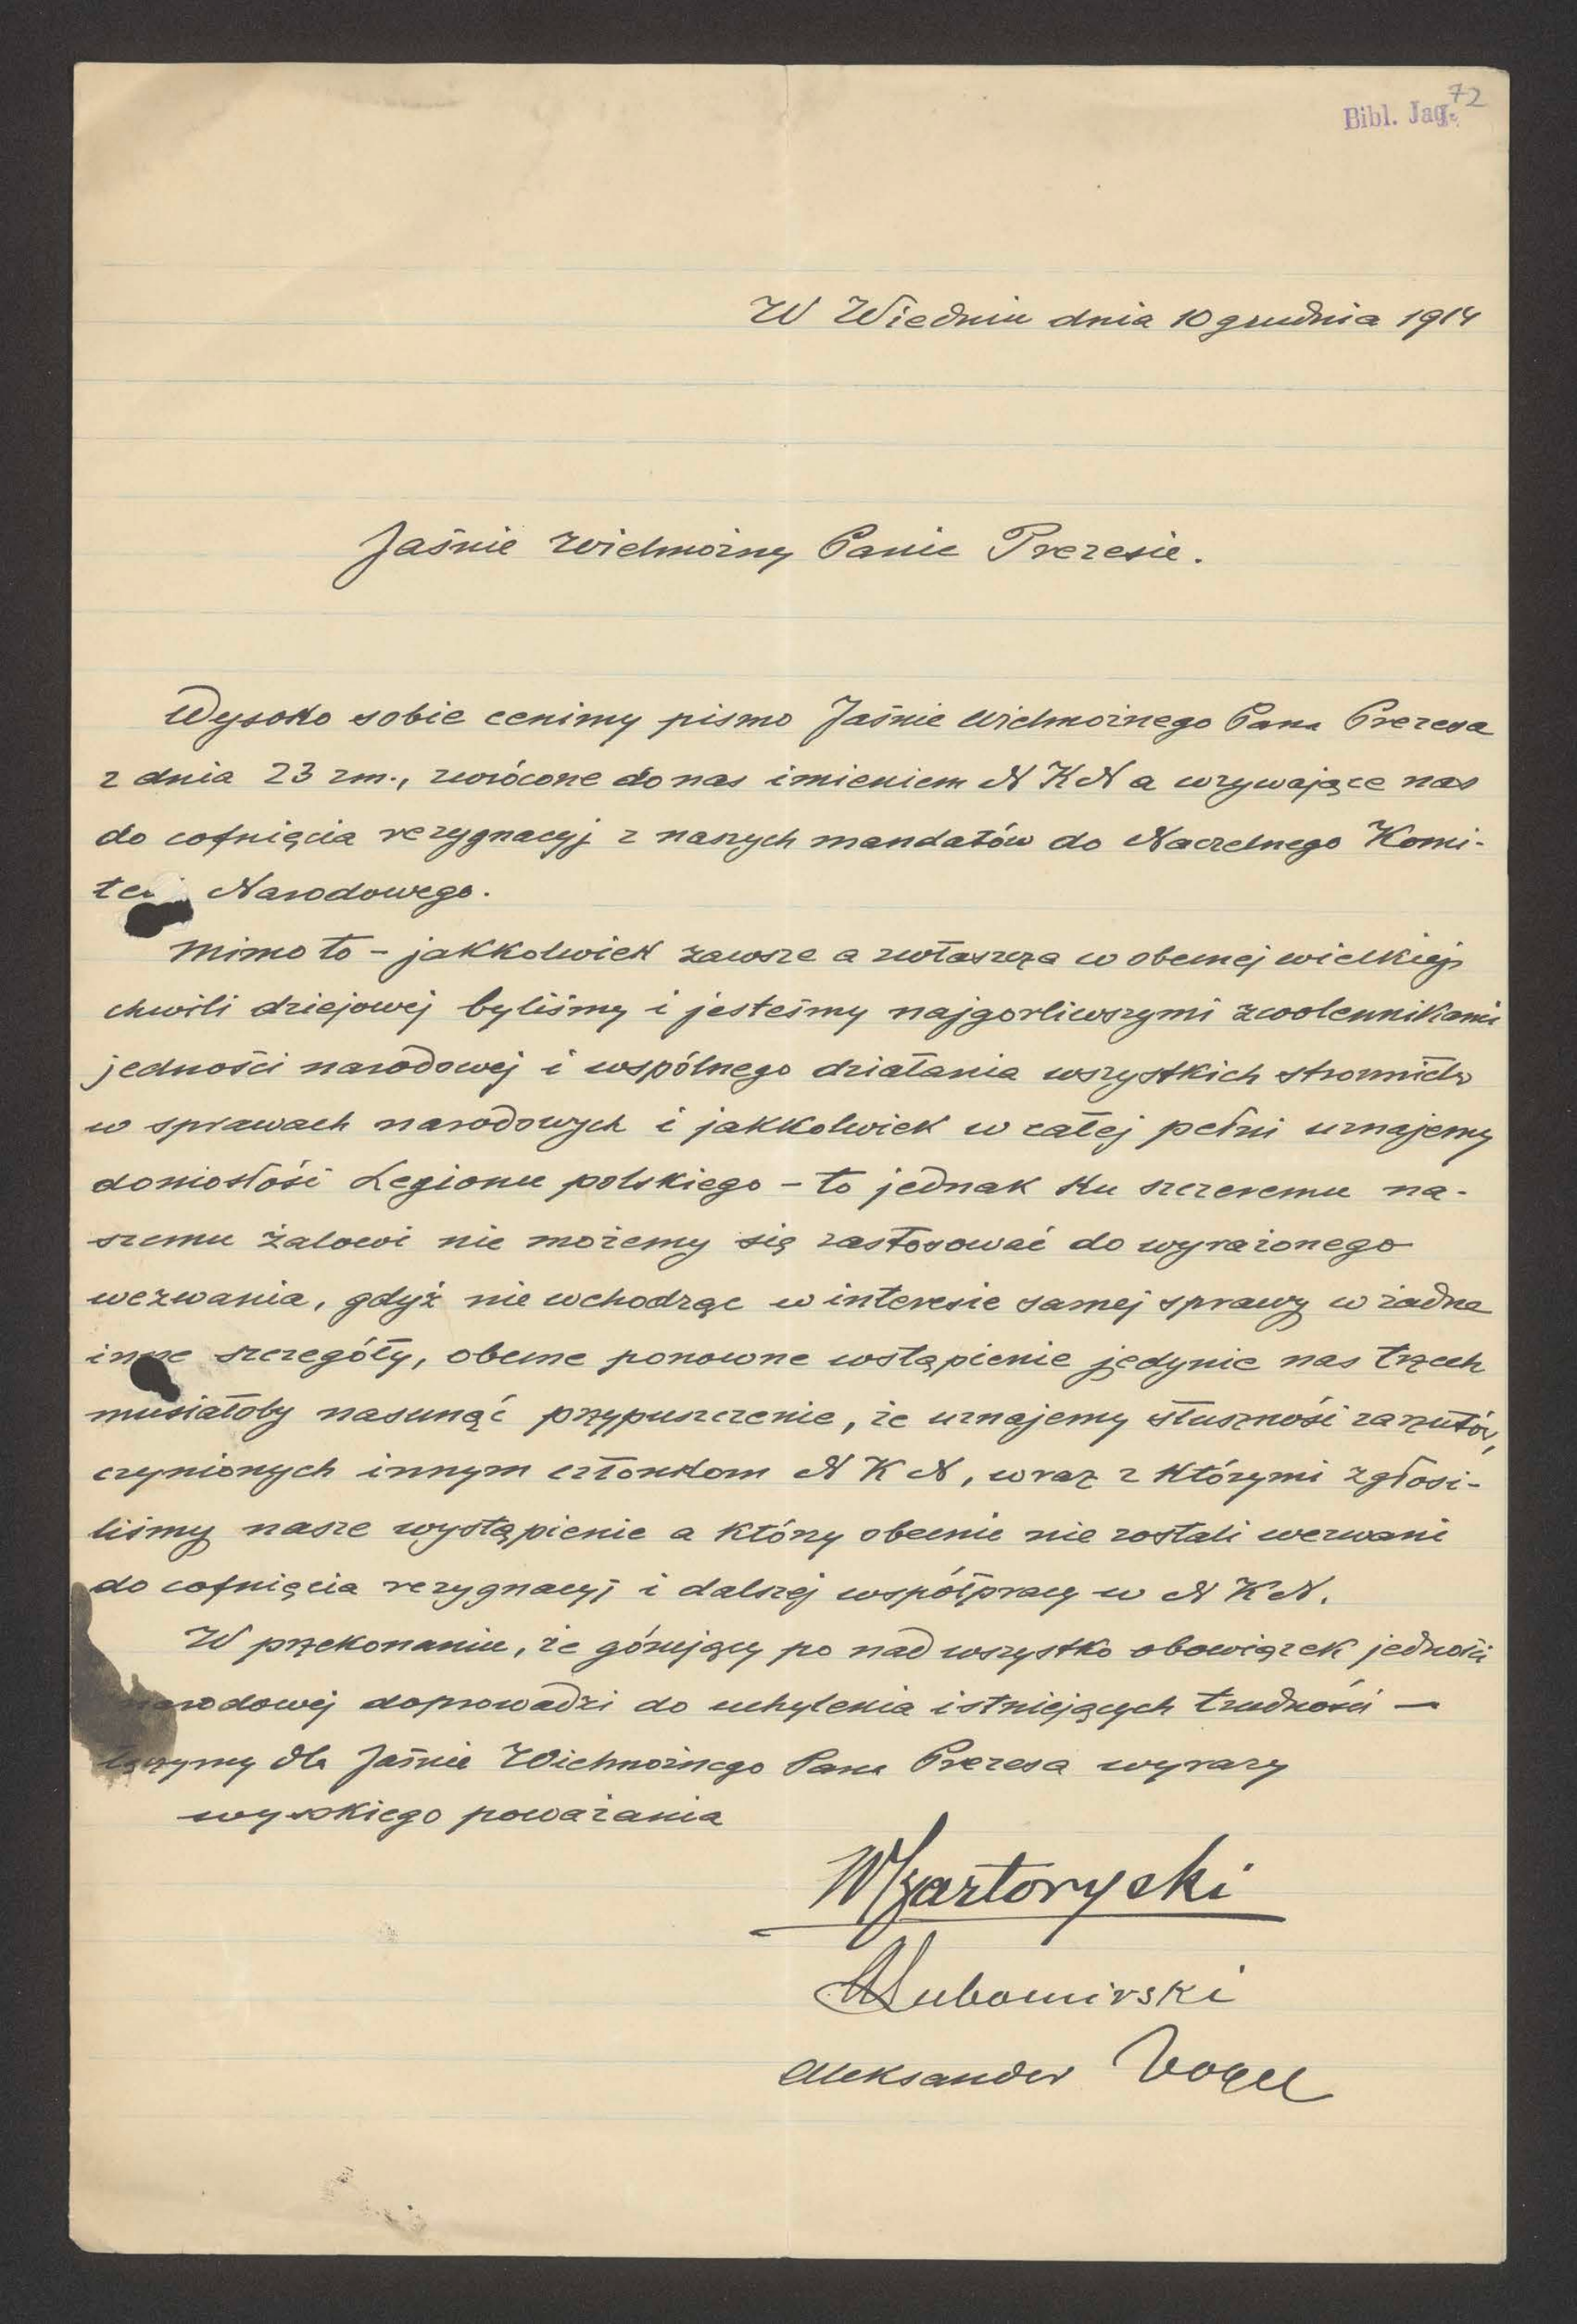 72
Bibl. Jag.
W Wiedniu dnia 10 grudnia 1914
Jaśnie Wielmożny Panie Prezesie.
Wysoko sobie cenimy pismo Jaśnie Wielmożnego Pana Prezesa
z dnia 23 zm., zwrócone do nas imieniem N K N a wzywające nas
do cofnięcia rezygnacyj z naszych mandatów do Naczelnego Komi-
tetu Narodowego.
Mimo to – jakkolwiek zawsze a zwłaszcza w obecnej wielkiej
chwili dziejowej byliśmy i jesteśmy najgorliwszymi zwolennikami
jedności narodowej i wspólnego działania wszystkich stronnictw
w sprawach narodowych i jakkolwiek w całej pełni uznajemy
doniosłość Legionu polskiego – to jednak ku szczeremu na-
szemu żalowi nie możemy się zastosować do wyrażonego
wezwania, gdyż nie wchodząc w interesie samej sprawy w żadne
inne szczegóły, obecne ponowne wstąpienie jedynie nas trzech
musiałoby nasunąć przypuszczenie, że uznajemy słuszność zarzutów,
czynionych innym członkom N K N, wraz z którymi zgłosi-
liśmy nasze wystąpienie a którzy obecnie nie zostali wezwani
do cofnięcia rezygnacyj i dalszej współpracy w N K N.
W przekonaniu, że górujący po nad wszystko obowiązek jedności
narodowej doprowadzi do uchylenia istniejących trudności —
łączymy dla Jaśnie Wielmożnego Pana Prezesa wyrazy
wysokiego poważania
WCzartoryski
ALubomirski
Aleksander Vogel